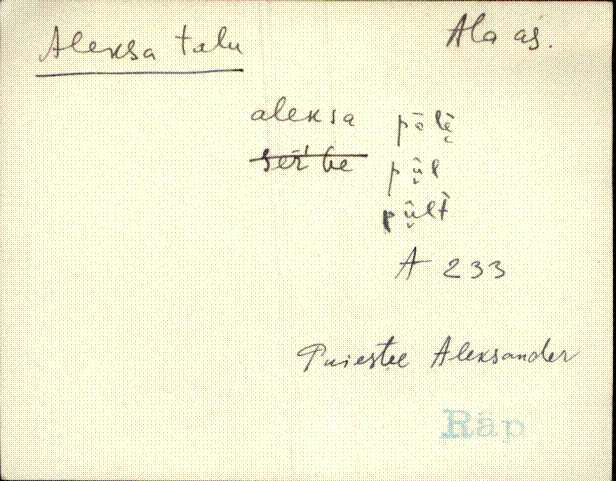 Aleksa talu
Ala as.
aleksa pālè̮
ser'be pū̮l
pū̮lt
A 233
Puiestee Aleksander
Räp